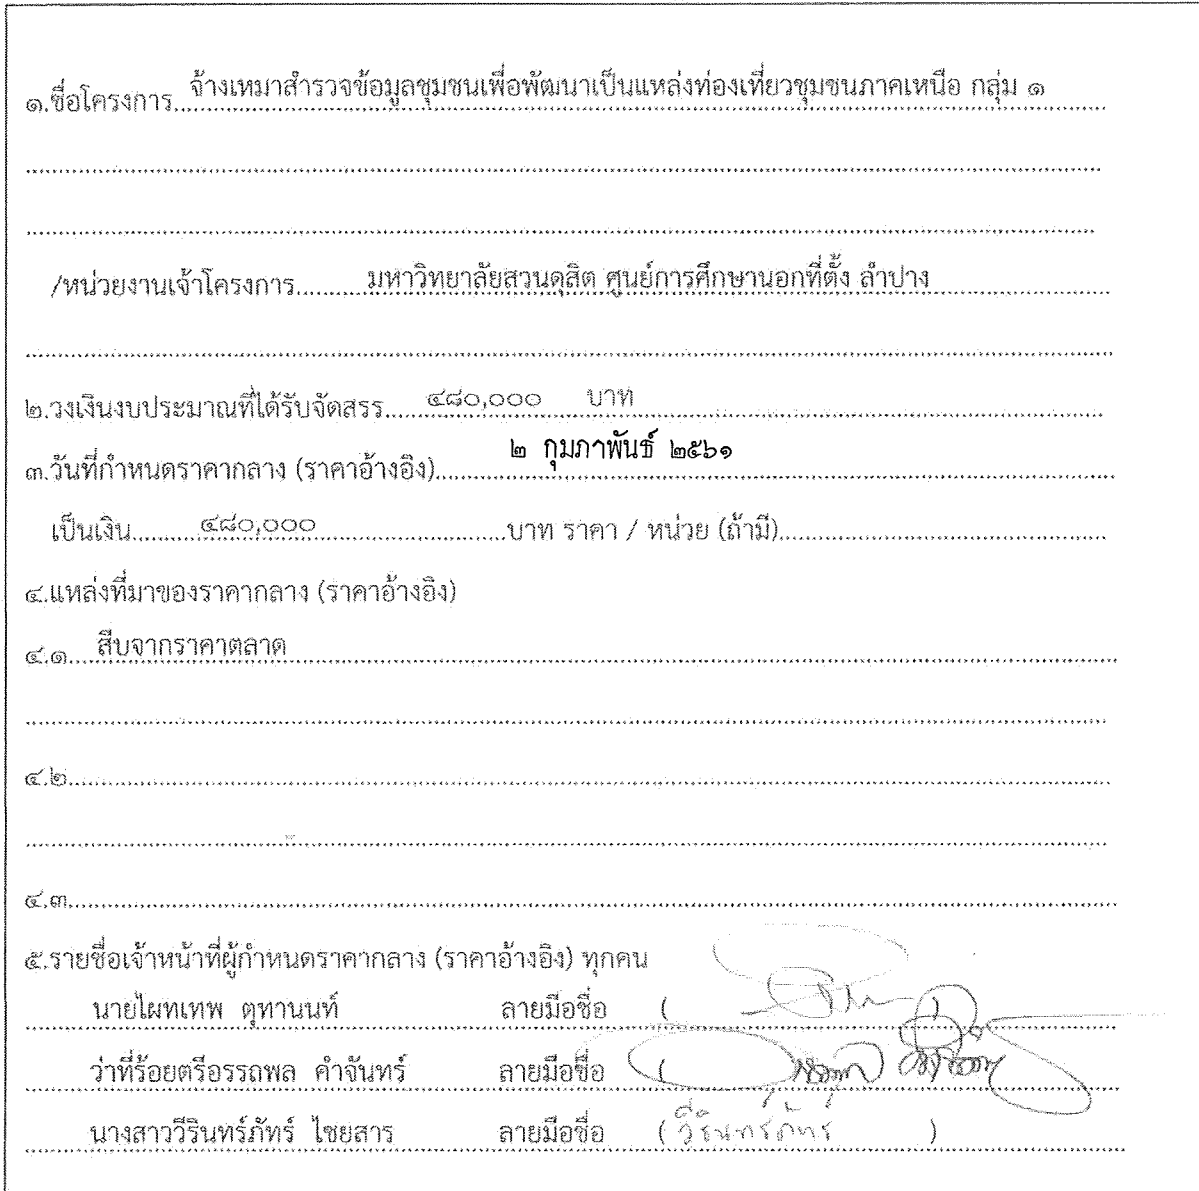 ๑.ชื่อโครงการ จ้างเหมาสำรวจข้อมูลชุมชนเพื่อพัฒนาเป็นแหล่งท่องเที่ยวชุมชนภาคเหนือ กลุ่ม ๑
/หน่วยงานเจ้าโครงการ มหาวิทยาลัยสวนดุสิต ศูนย์การศึกษานอกที่ตั้ง ลำปาง
๒.วงเงินงบประมาณที่ได้รับจัดสรร ๔๘๐,๐๐๐ บาท
๓.วันที่กำหนดราคากลาง (ราคาอ้างอิง) ๒ กุมภาพันธ์ ๒๕๖๑
เป็นเงิน ๔๘๐,๐๐๐ บาท ราคา / หน่วย (ถ้ามี)
๔.แหล่งที่มาของราคากลาง (ราคาอ้างอิง)
๔.๑ สืบจากราคาตลาด
๔.๒
๔.๓
๕.รายชื่อเจ้าหน้าที่ผู้กำหนดราคากลาง (ราคาอ้างอิง) ทุกคน
นายไผทเทพ ตุทานนท์ ลายมือชื่อ ( )
ว่าที่ร้อยตรีอรรถพล คำจันทร์ ลายมือชื่อ (
นางสาววีรินทร์ภัทร์ ไชยสาร ลายมือชื่อ ( วีรินทร์ภัทร์ )